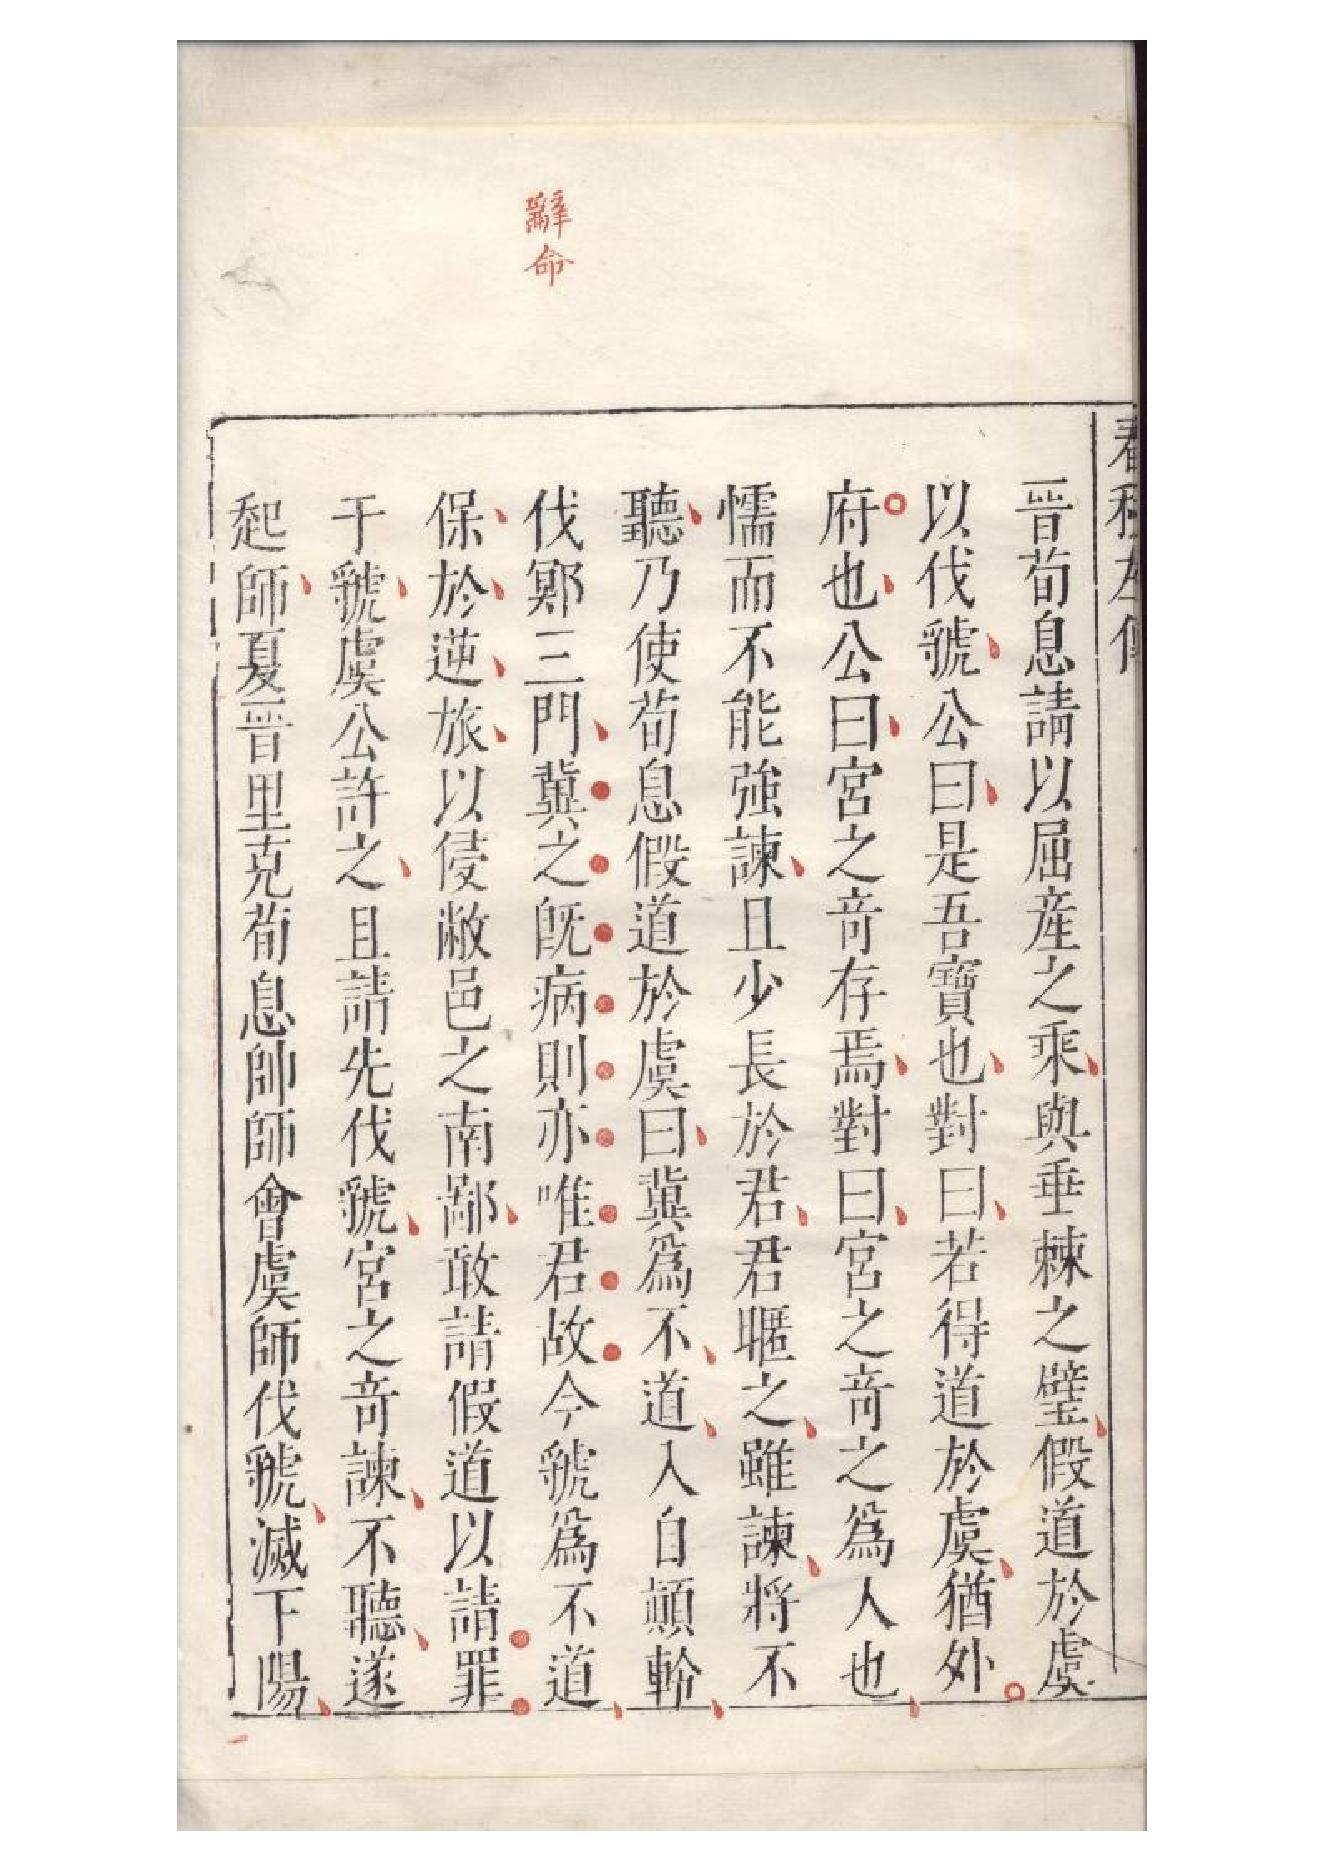 春秋左傳
辭命
晉荀息請以屈産之乘與垂棘之璧假道於虞
以伐虢公曰是吾寶也對曰若得道於虞猶外
府也公曰宮之奇存焉對曰宮之奇之爲人也
懦而不能強諫且少長於君君暱之雖諫將不
聽乃使荀息假道於虞曰冀爲不道入自顛軨
伐鄍三門冀之旣病則亦唯君故今虢爲不道
保於逆旅以侵敝邑之南鄙敢請假道以請罪
于虢虞公許之且請先伐虢宮之奇諫不聽遂
起師夏晉里克荀息帥師會虞師伐虢滅下陽